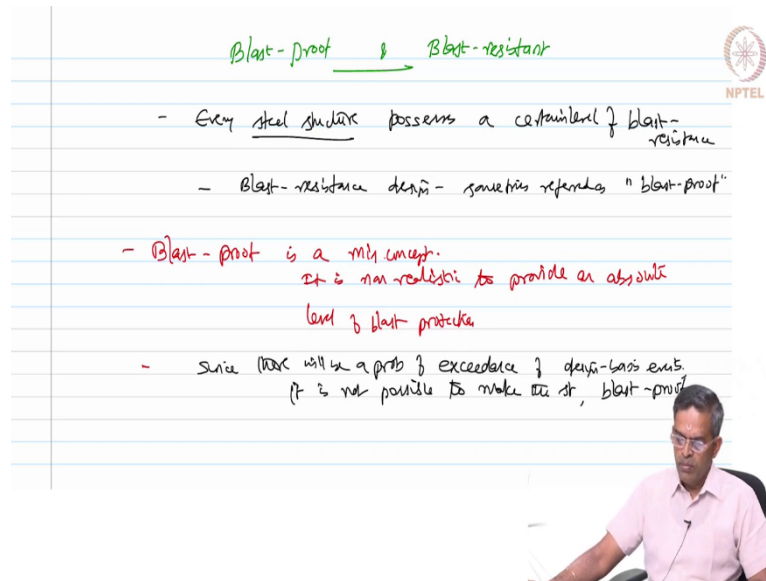 Blast-proof & Blast-resistant
NPTEL
- Every steel structure possesses a certain level of blast-
resistance
- Blast-resistance design - sometimes referred as "blast-proof"
- Blast-proof is a misconcept.
It is non realistic to provide an absolute
level of blast protection
- Since there will be a prob of exceedance of design-basis events.
it is not possible to make the st, blast-proof